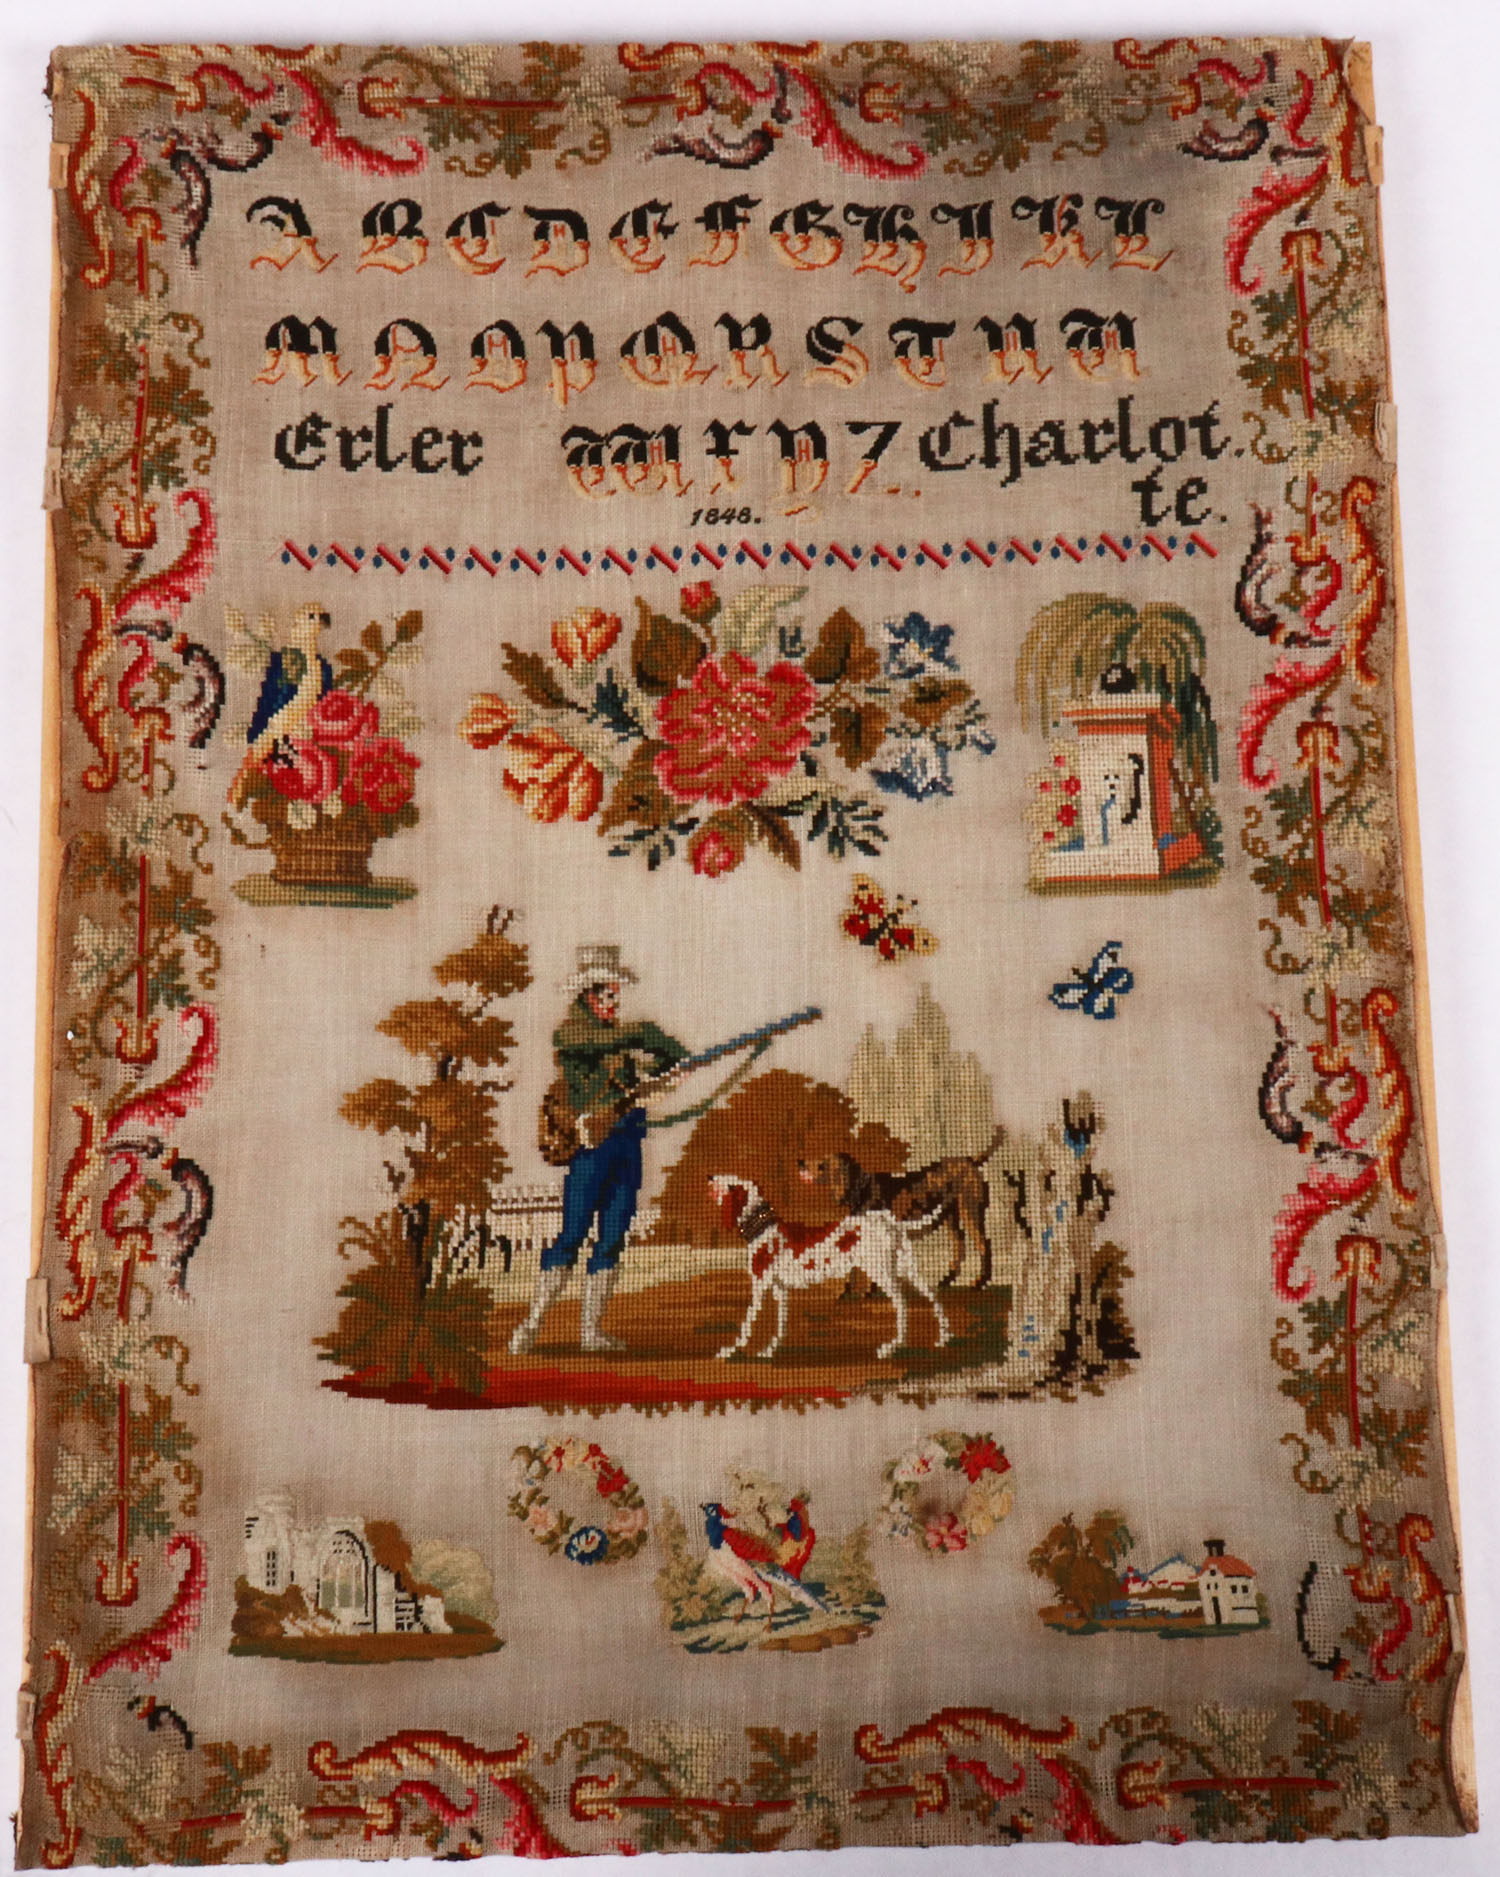 A B C D E F G H I K L
M N O P Q R S T U V
Erler W X Y Z. Charlot.
te.
1848.